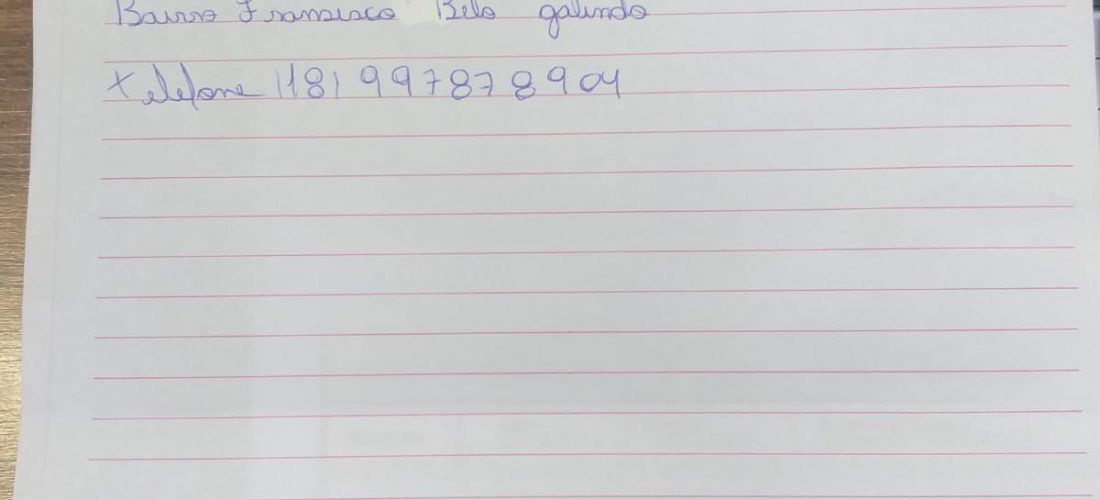 Bairro Francisco Belo galindo
telefone (18) 997878904